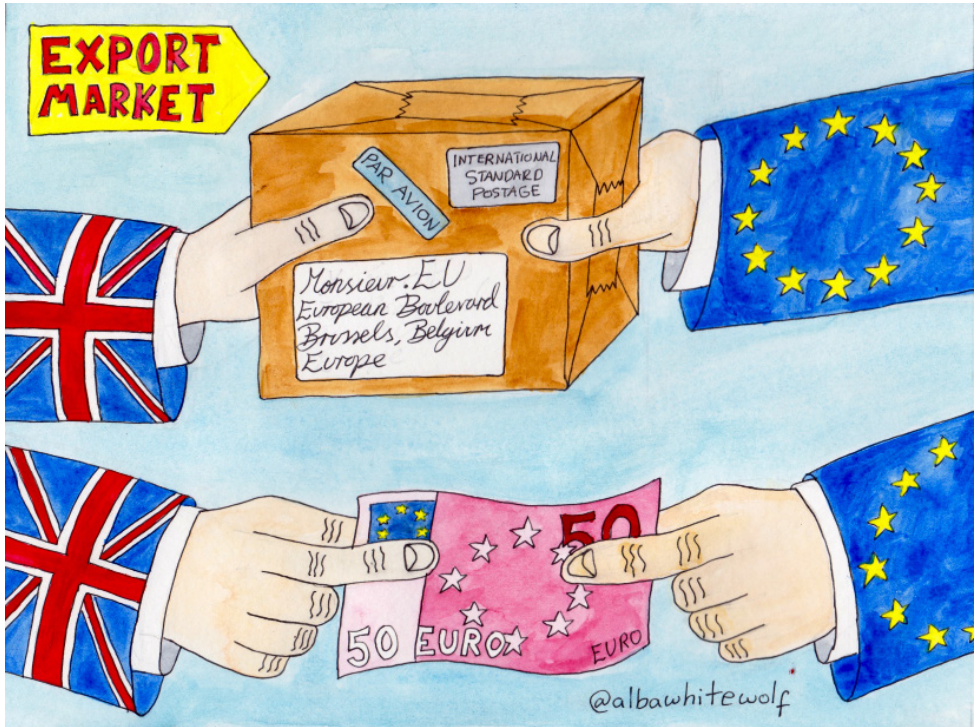 EXPORT
MARKET
PAR AVION
INTERNATIONAL
STANDARD
POSTAGE
Monsieur. EU
European Boulevard
Brussels, Belgium
Europe
50
50 EURO
EURO
@albawhitewolf